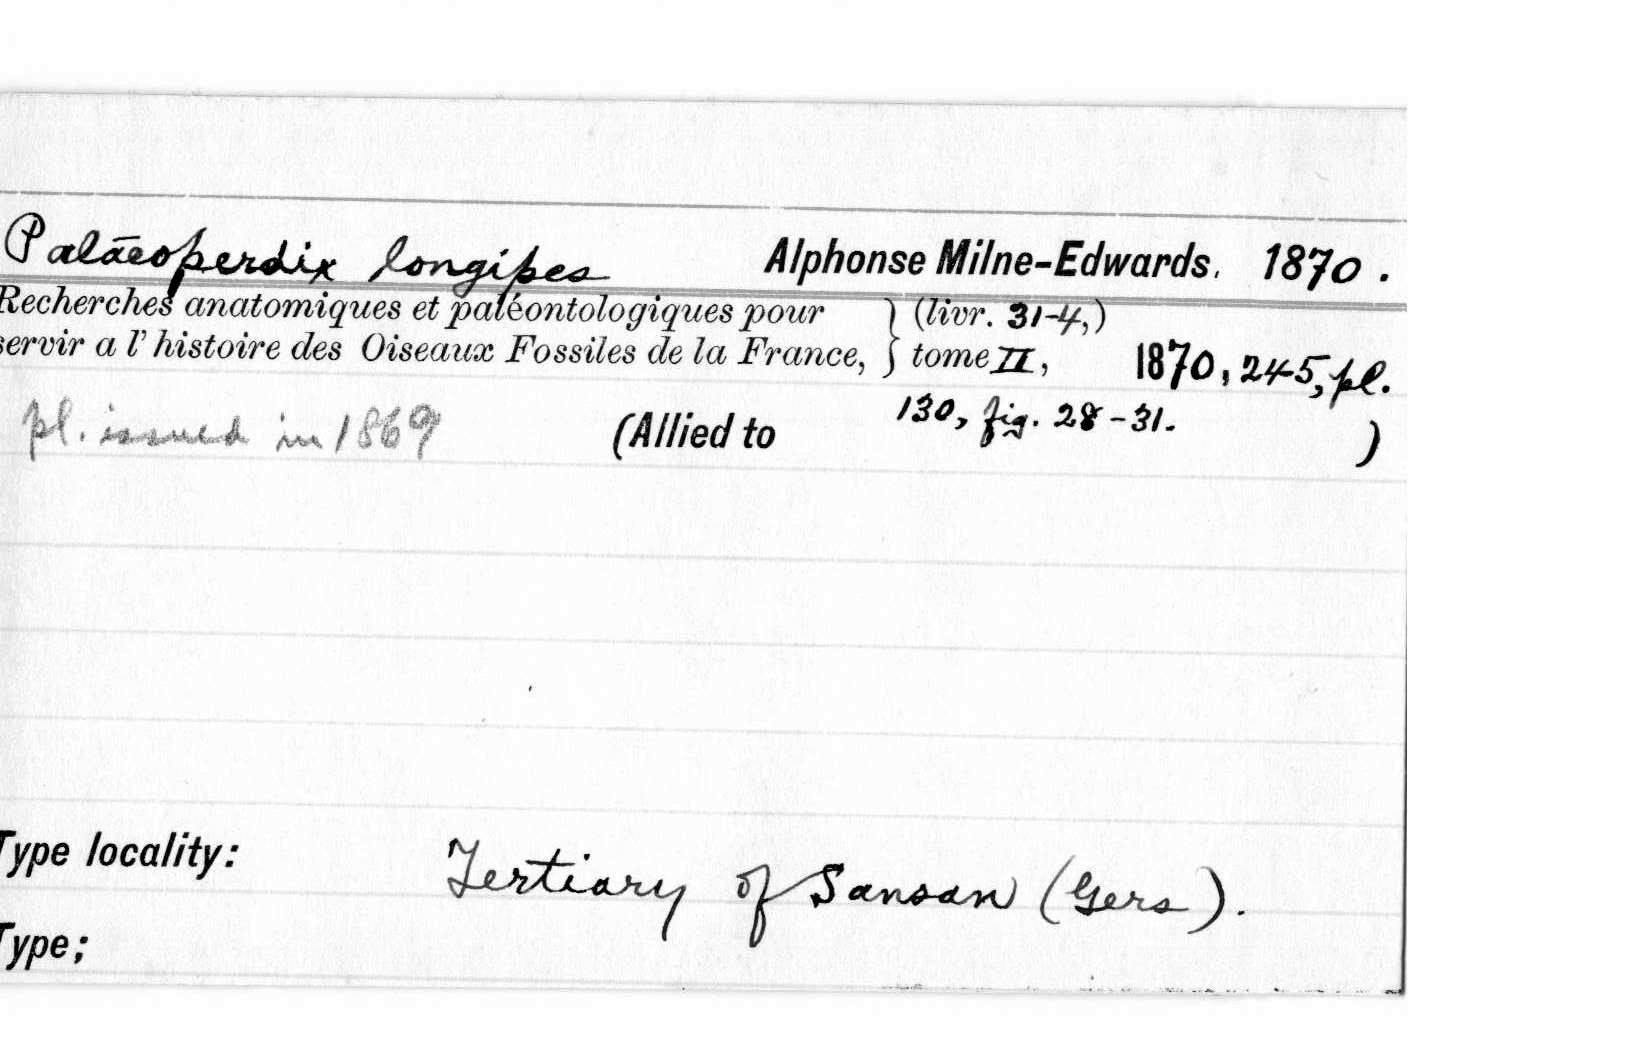 Palaeoperdix longipes Alphonse Milne-Edwards. 1870.
Recherches anatomiques et paléontologiques pour } (livr. 31-4,)
servir a l'histoire des Oiseaux Fossiles de la France, } tome II, 1870, 245, pl.
130, fig. 28-31.
pl. issued in 1869 (Allied to )
Type locality: Tertiary of Sansan (Gers).
Type;